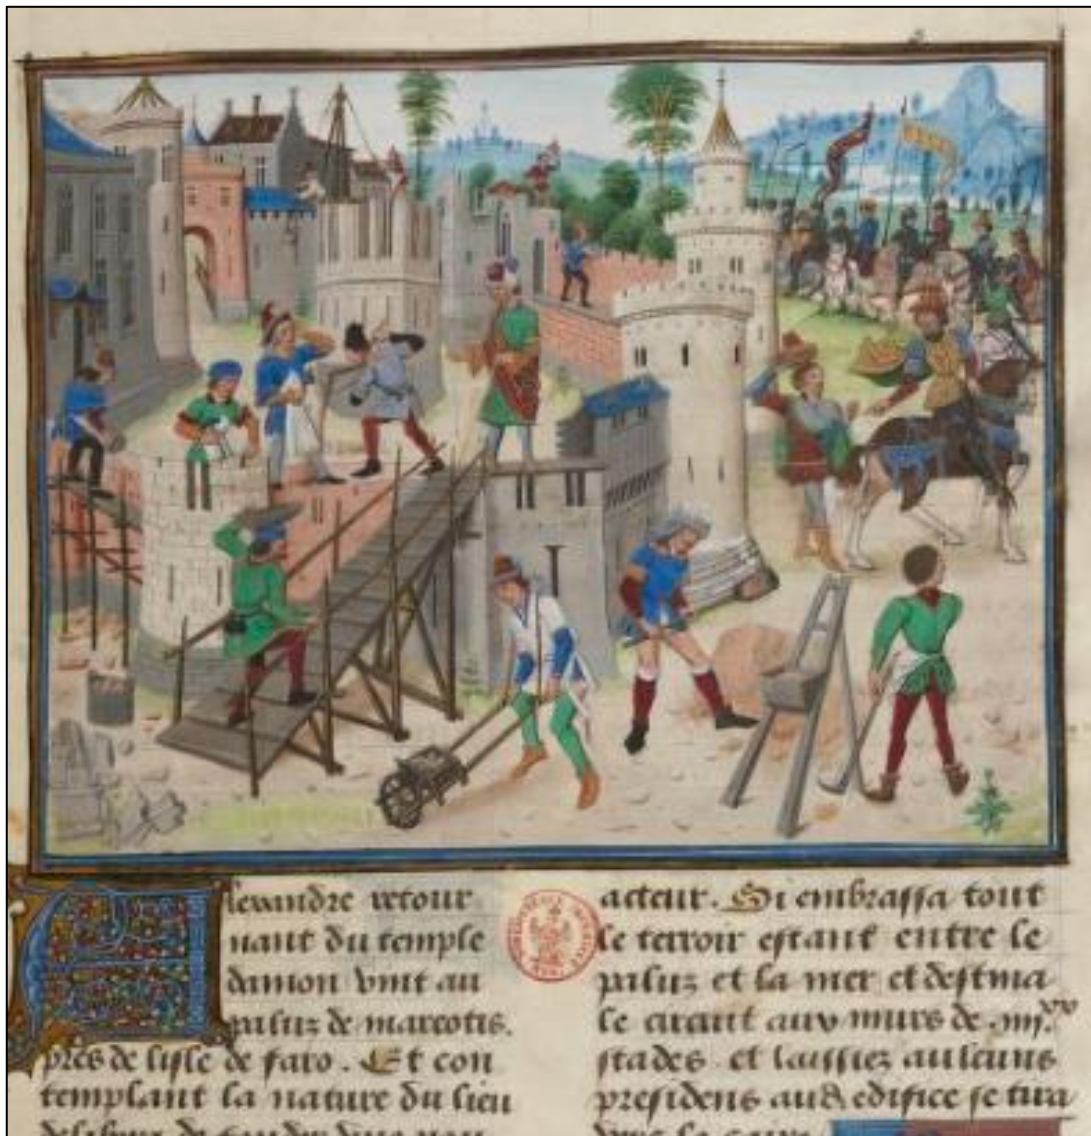 Alexandre retour
nant du temple
damon vint au
paluz de mareotis.
pres de lisle de faro. Et con
templant la nature du lieu
acteur. Si embrassa tout
le terroir estant entre le
paluz et la mer et destina
le circuit aux murs de .iiii.xx
stades et laissiez aulcuns
presidens aud edifice se tira